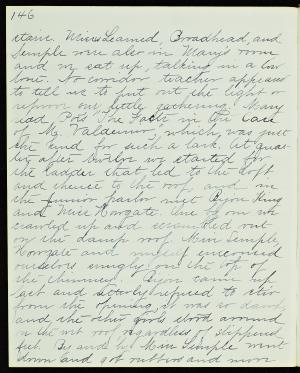 146
stairs. Misses Learned, Broadhead, and
Temple were also in Mary's room
and we sat up, talking in a low
tone. No corridor teacher appeared
to tell us to put out the light or
reprove our little gathering. Mary
read Poe's The Facts in the Case
of M. Valdemar, which was just
the kind for such a lark. At quar-
ter after twelve we started for
the ladder that led to the loft
and thence to the roof, and in
the Junior parlor met Bijou King
and Miss Howgate. One by one we
crawled up and scrambled out
on the damp roof. Miss Temple,
Howgate and myself ensconced
ourselves snugly on the top of
the chimney. Bijou came up
last and utterly refused to stir
from the opening, it was so damp,
and the other girls stood around
on the wet roof regardless of slippered
feet. By and by Miss Temple went
down and got rubbers and more